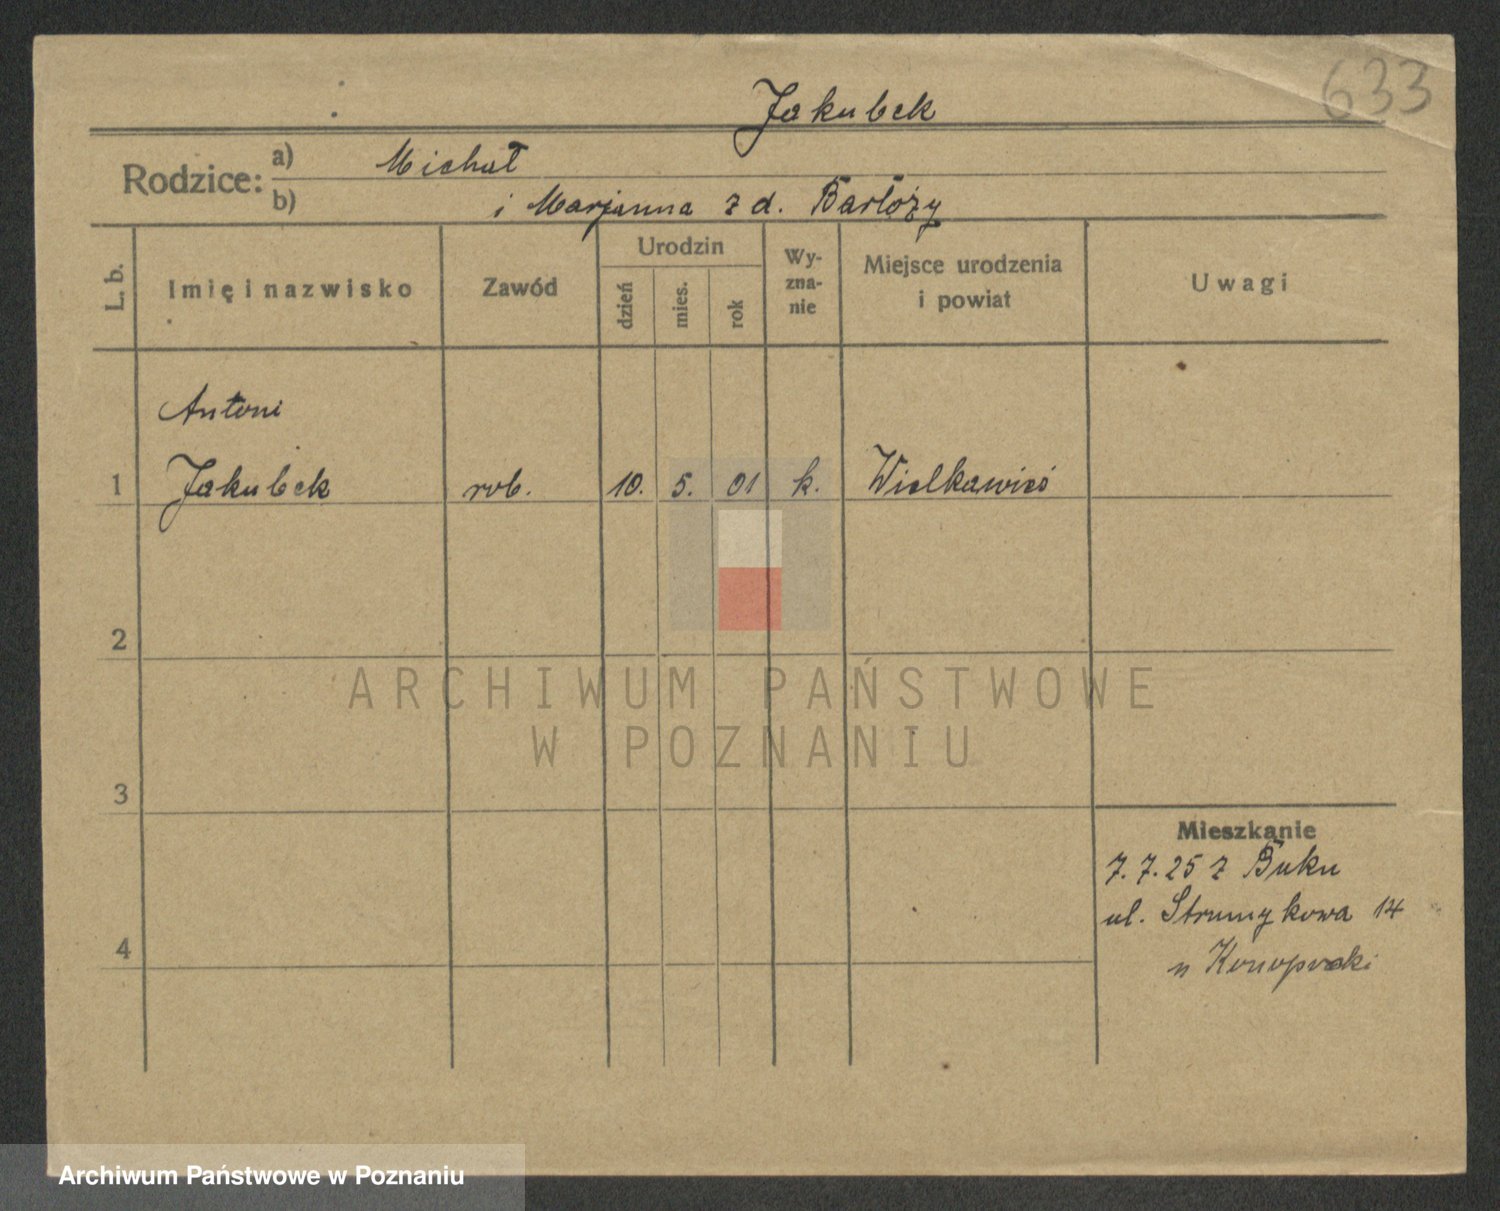 633
Jakubek
Rodzice:
a) Michał
b) i Marjanna z d. Barłóży
L. b.
Imię i nazwisko
Zawód
Urodzin
dzień
mies.
rok
Wy-
zna-
nie
Miejsce urodzenia
i powiat
Uwagi
Antoni
1 Jakubek rob. 10. 5. 01 k. Wielkawieś
2
ARCHIWUM PAŃSTWOWE
W POZNANIU
3
Mieszkanie
7.7.25 z Buku
ul. Strumykowa 14
4
Archiwum Państwowe w Poznaniu